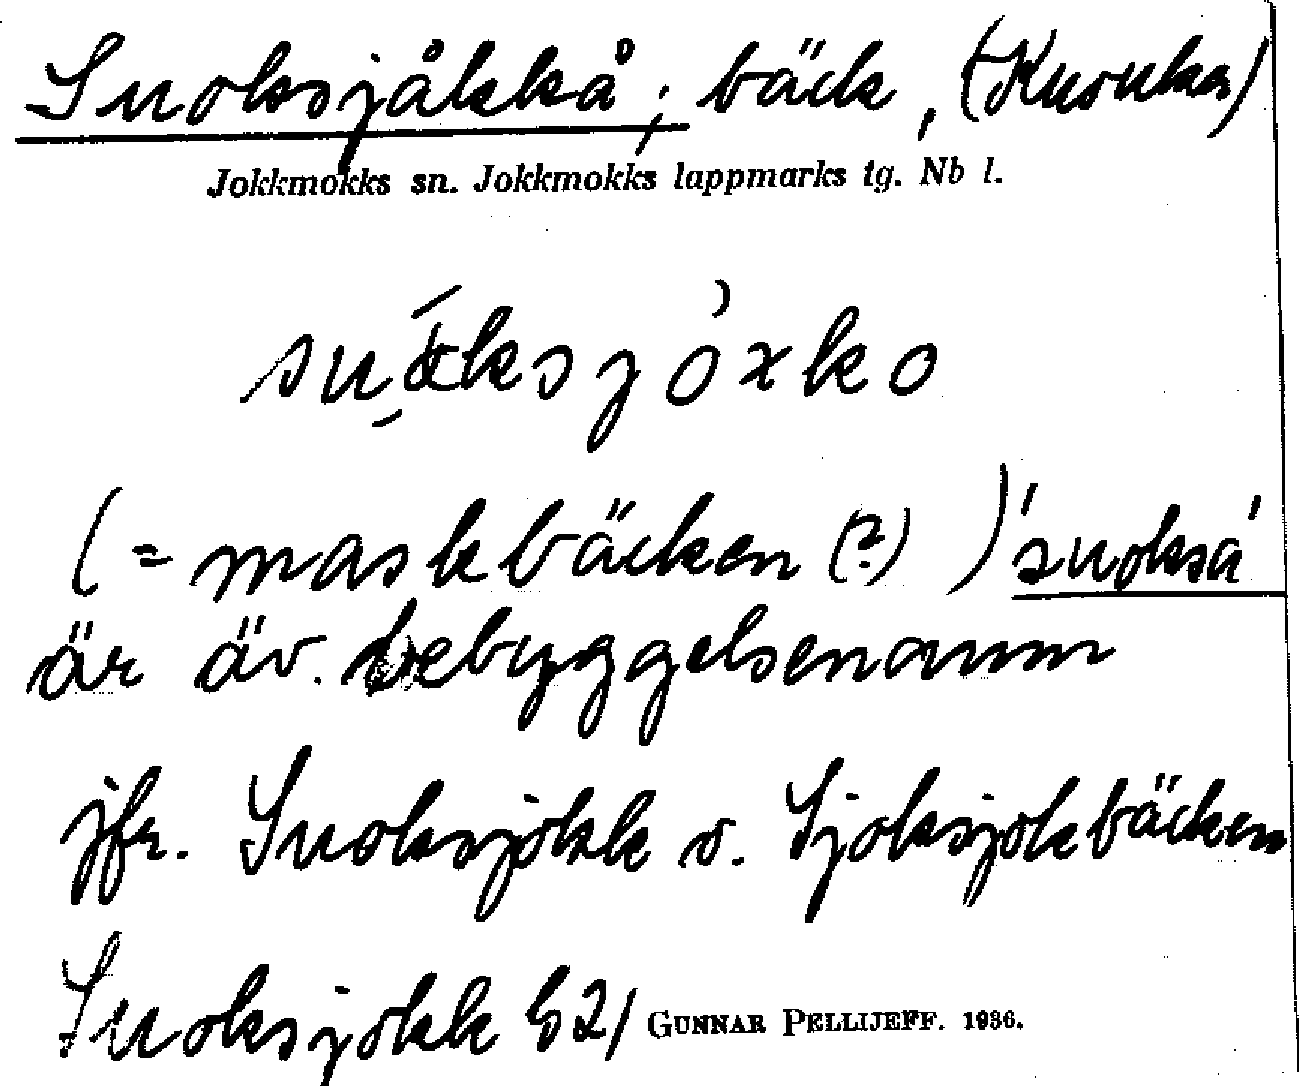 Suoksjåkkå; bäck, (Kuouka)
Jokkmokks sn. Jokkmokks lappmarks tg. Nb l.
(= maskbäcken (?) ) 'suoksa'
är äv. bebyggelsenamn
jfr. Suoksjokk o. Sjoksjokbäcken
Suoksjokk b2/ GUNNAR PELLIJEFF. 1936.